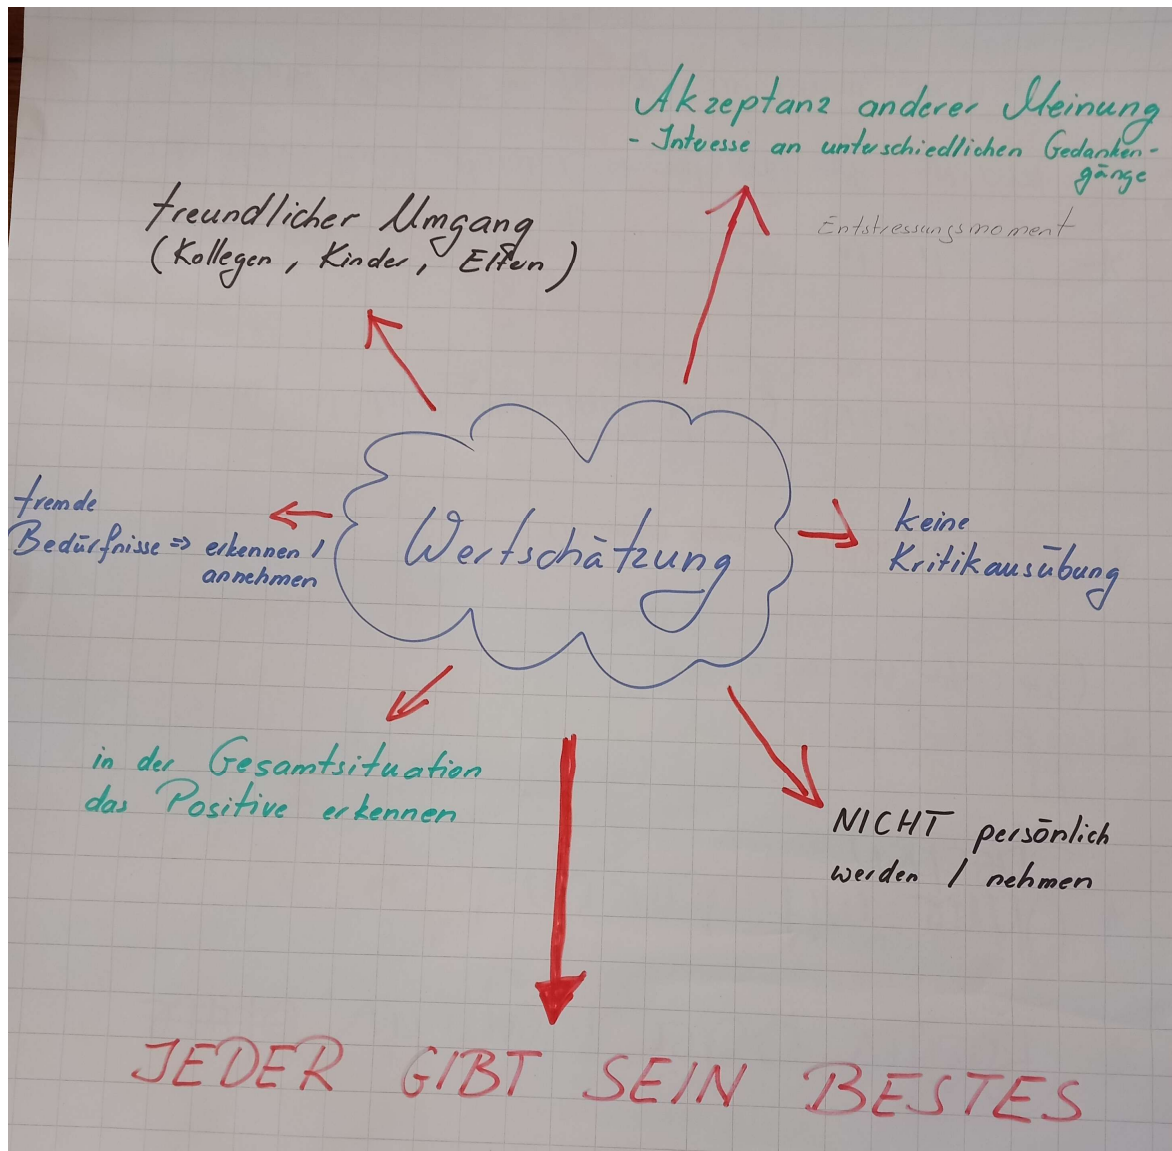 Akzeptanz anderer Meinung
- Interesse an unterschiedlichen Gedanken-
gänge
Entstressungsmoment
freundlicher Umgang
(Kollegen, Kinder, Eltern)
fremde
Bedürfnisse => erkennen /
annehmen
Wertschätzung
keine
Kritikausübung
in der Gesamtsituation
das Positive erkennen
NICHT persönlich
werden / nehmen
JEDER GIBT SEIN BESTES